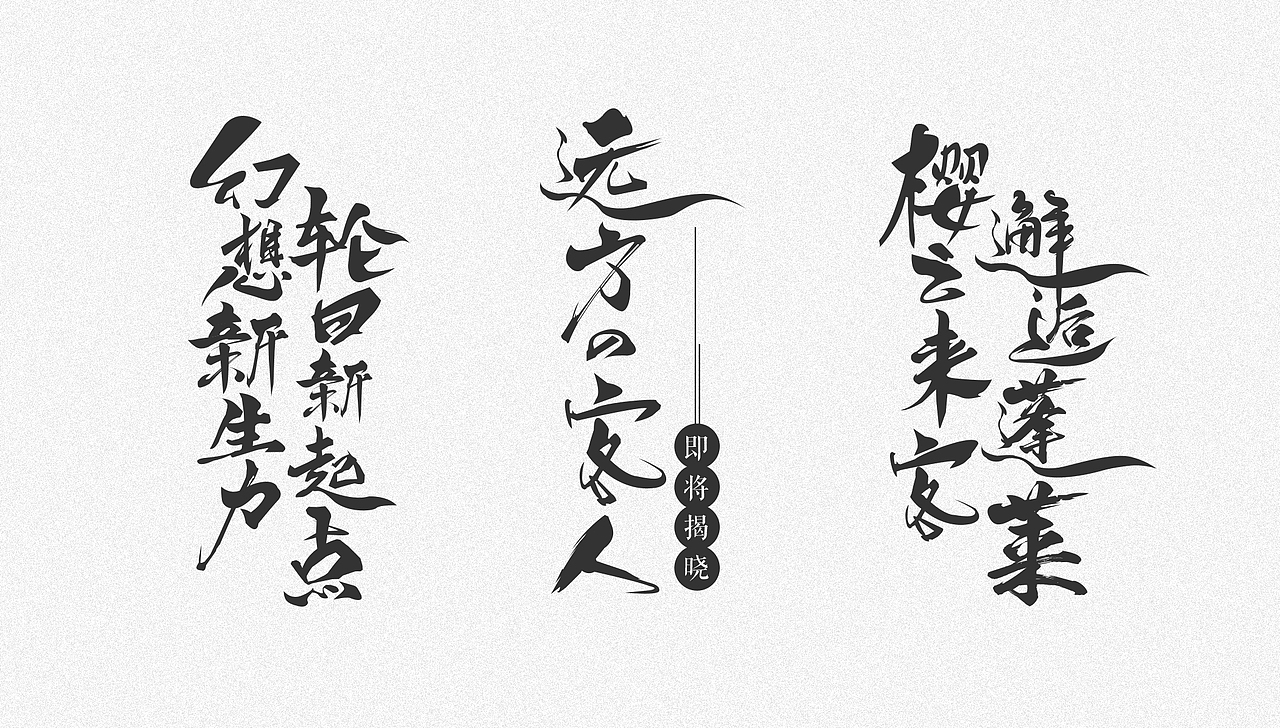 幻想新生力
轮回新起点
远方の客人
即将揭晓
樱云来客
邂逅蓬莱